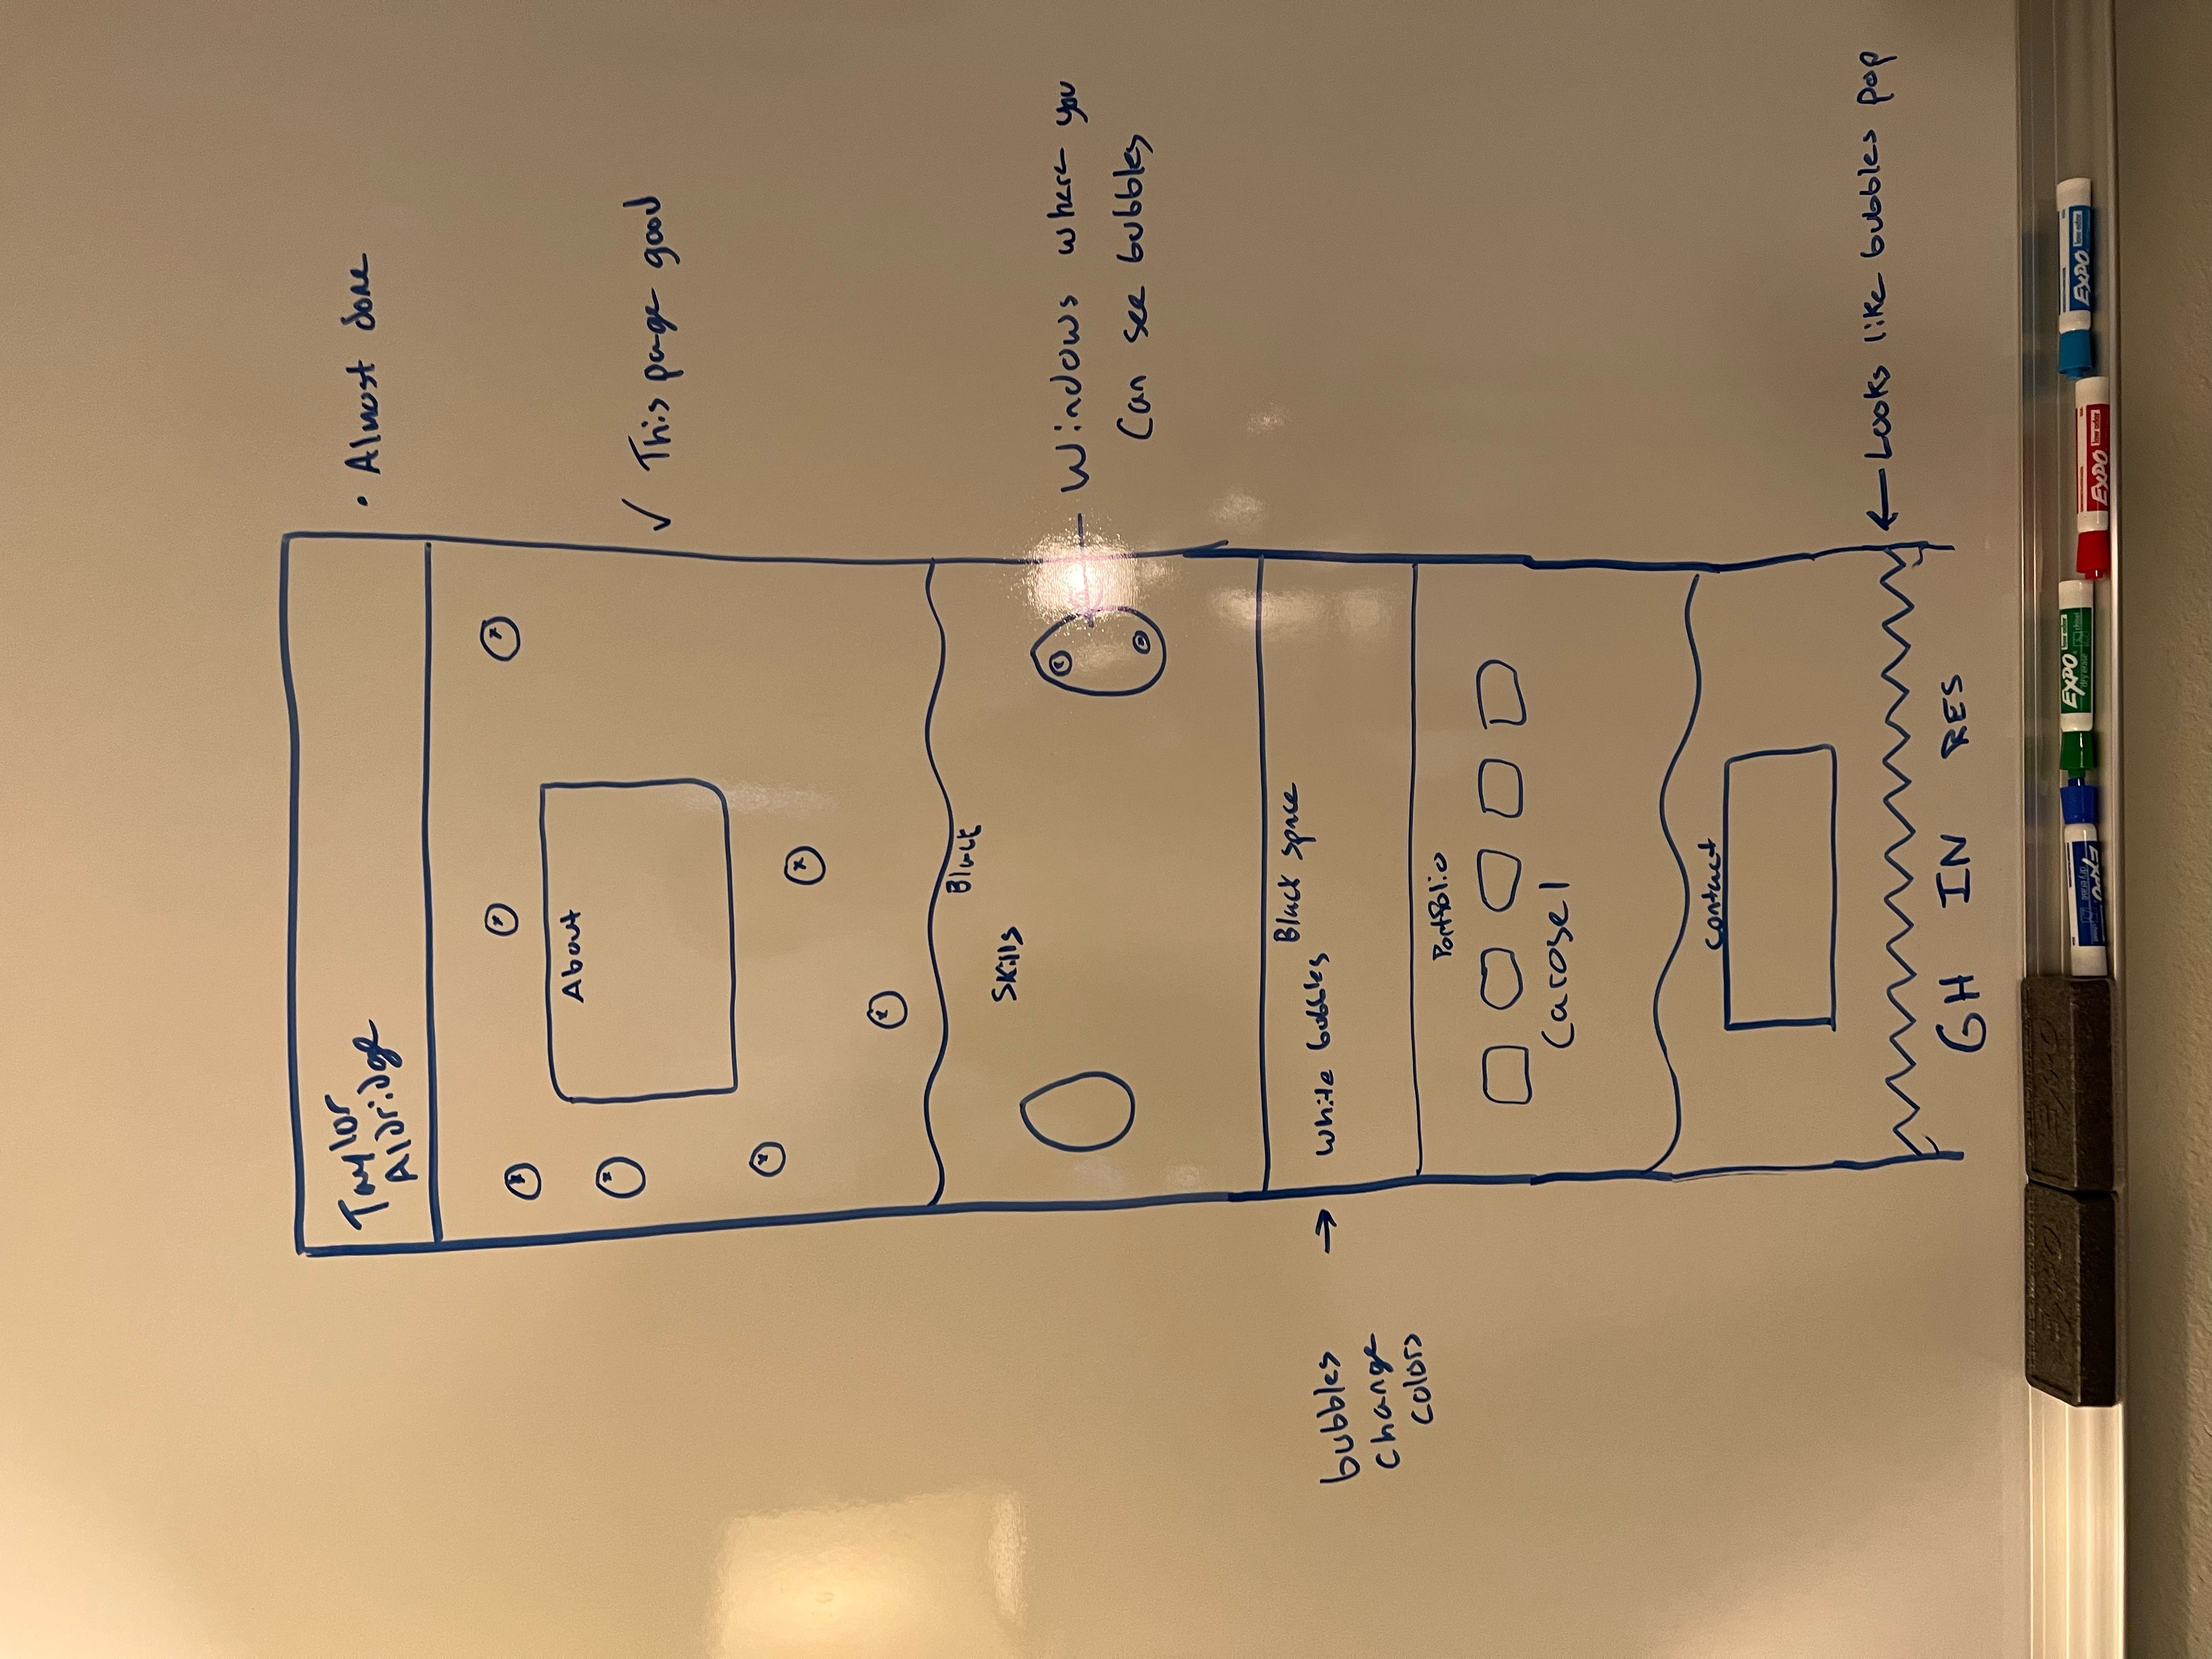 Taylor
Aldridge
• Almost done
About
✓ This page good
Black
Skills
Windows where you
Can see bubbles
Black space
White bubbles
bubbles
change
colors
Portfolio
Carosel
Contact
Looks like bubbles pop
GH IN RES
EXPO
EXPO
EXPO
EXPO
dry erase
low odor
chisel
EXPO
low odor
EXPO
low odor